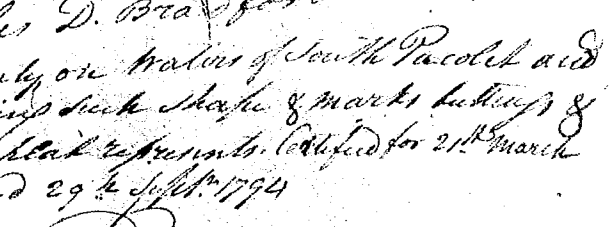 D. Bradford
on waters of South Pacolet and
such shape & marks buttings &
plat represents. Certified for 21st March
29th Septr. 1794